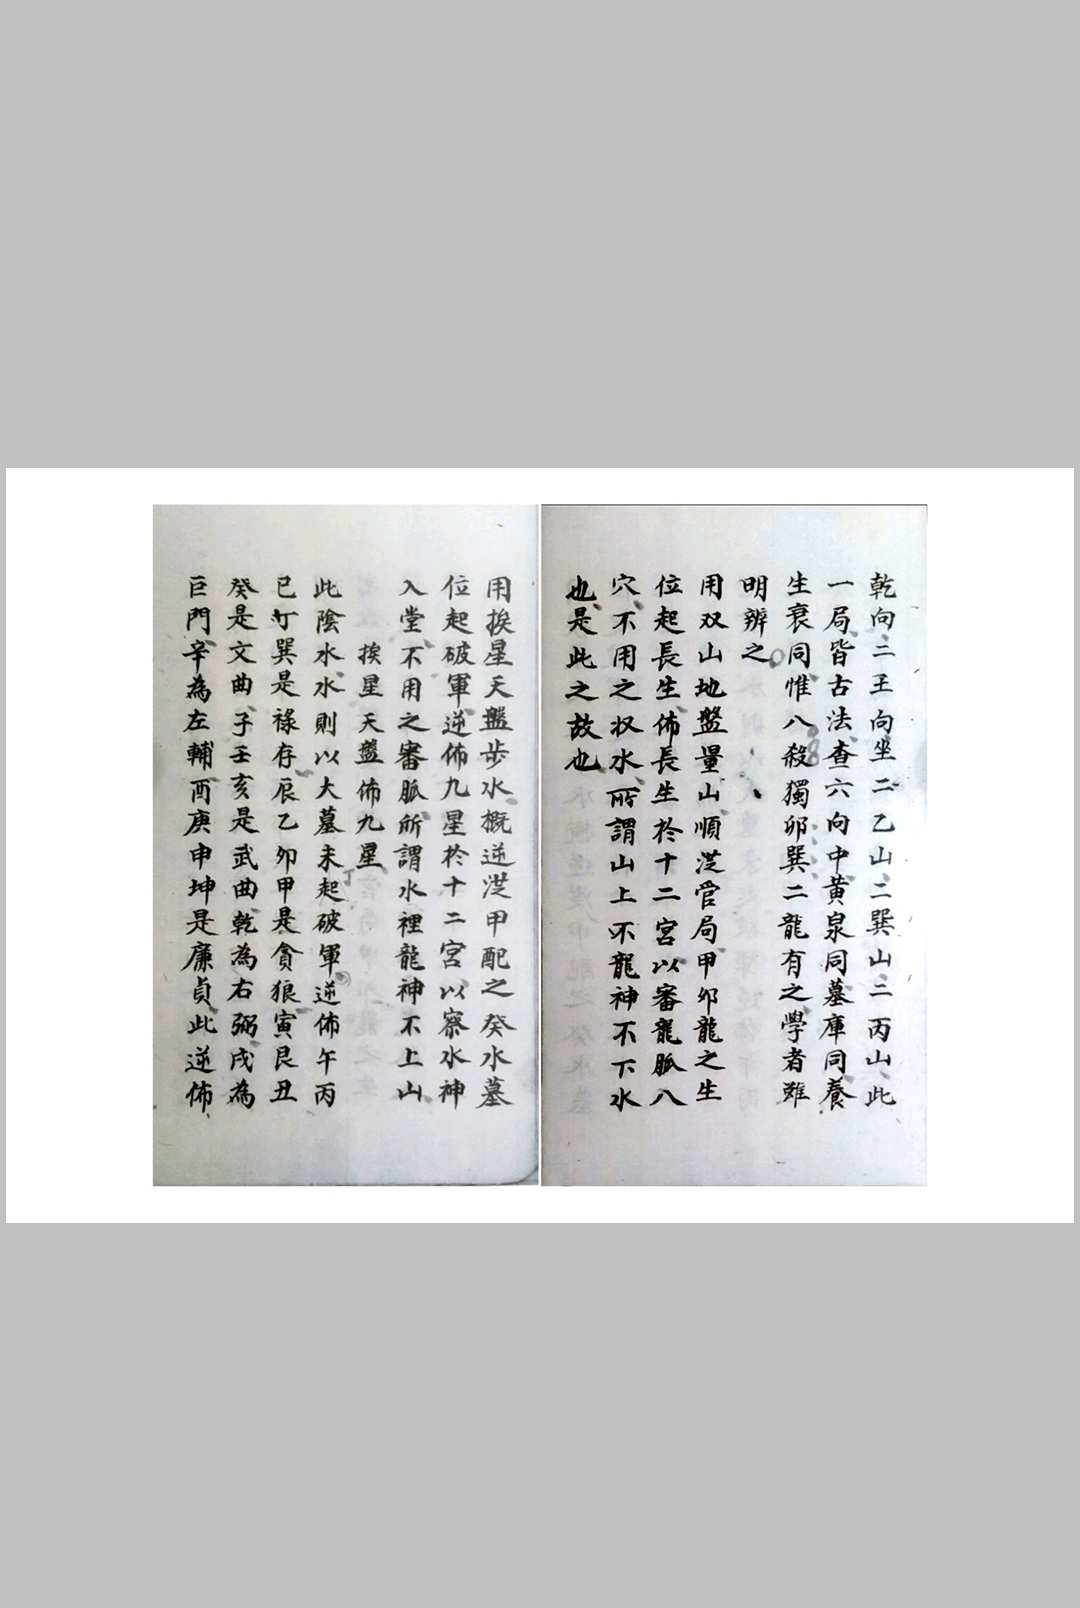 乾向三壬向坐二乙山二巽山二丙山此
一局皆古法查六向中黄泉同墓庫同養
生衰同惟八殺獨卯巽二龍有之學者雖
明辨之
用双山地盤量山順從官局甲卯龍之生
位起長生佈長生於十二宮以審龍脈八
穴不用之扠水所謂山上不龍神不下水
也是此之故也
用挨星天盤步水概逆從甲配之癸水墓
位起破軍逆佈九星於十二宮以察水神
入堂不用之審脈所謂水裡龍神不上山
挨星天盤佈九星
此陰水水則以大墓未起破軍逆佈午丙
巳丁巽是祿存辰乙卯甲是貪狼寅艮丑
癸是文曲子壬亥是武曲乾為右弼戌為
巨門辛為左輔酉庚申坤是廉貞此逆佈